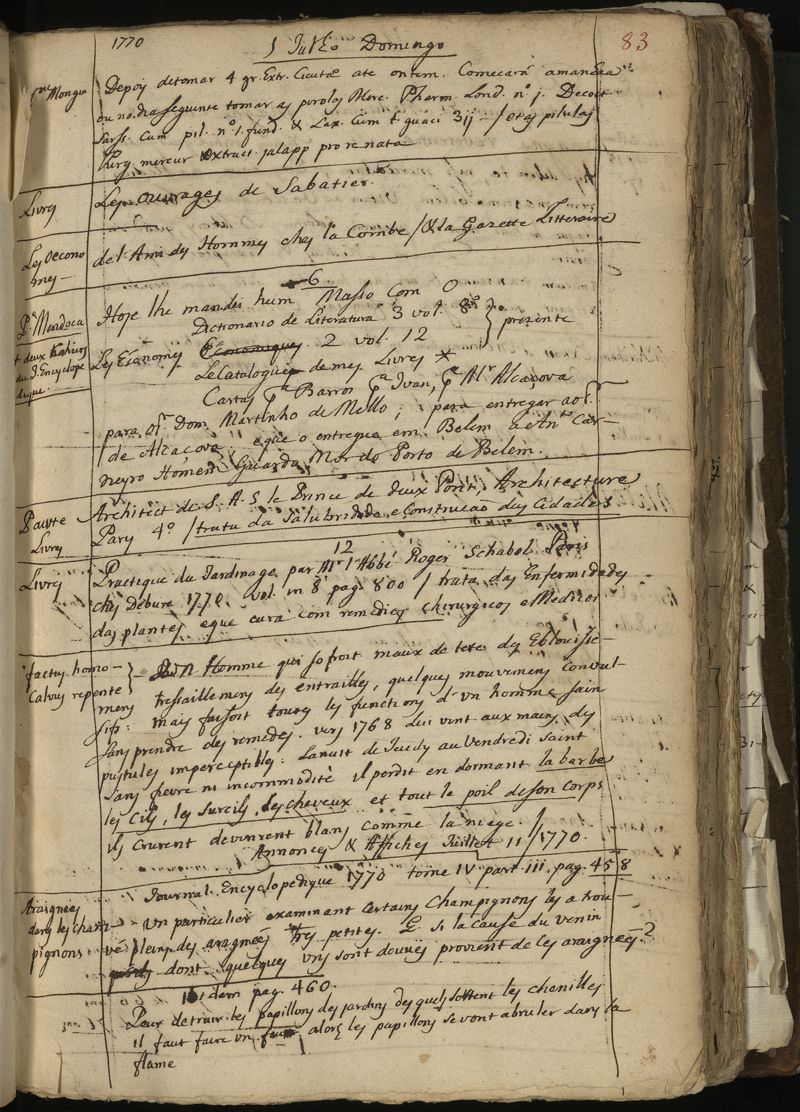 1770
1 Julho Domingo
83
Depois de tomar 4 gr. Extr. Cicutæ ate ontem. Comecará amanhãa
ou no dia seguinte tomar as pirolas Merc. Pharm. Lond. nº j. Decoct
Sarss. Cum pil. nº 1. fund. & Lax. Cum t. guaci 3ij / etas pilulas
purg. mercur extract. jalapp pro re nata
Livres
Les ouvrages de Sabatier.
Les Oecono
mes
de l'Ami des Hommes ches la Combe / & la Gazette Litteraire
6
Dr Mendoca
Hoje lhe mandei hum Masso com O
Dictionario de Literatura 3 vol. 8º
prezente
+ deux Cahiers
du J. Encyclope
dique
Les Economies Economiques 2 vol. 12
Le Catalogue de mes Livres *
Cartas pª Barros pª Ivan, pª Mr Alcaçova
para Dom. Martinho de Mello; pera entregar ao
de Alcaçova, eque o entregue em Belem a Antº Car-
neyro Homem Guarda Mor do Porto de Belem.
Patte
Livres
Architect de S. A. S le Prince de deux Ponts, Architecture
Parys 4º / trata da Salubridade e Construcao das Cidades
12
Livres
Practique du Jardinage par Mr l'Abbé Roger Schabol Paris
ches Debure 1770. vol. in 8 pag. 800 / trata das Enfermidades
das plantes eque cura com remedios chirurgicos e Medicos
factus homo
Calvus repente
Un Homme qui sofroit maux de tete des Eblouisse-
mens tressaillemens des entrailles, quelques mouvemens convul-
sifs: mais faisoit toutes les functions d'un homme sain
sans prendre des remedes. vers 1768 lui vint aux mains des
pustules imperceptibles. La nuit de Jeudy au Vendredi saint
sans fievre ni incommodité il perdit en dormant la barbe
les Cils, les Surcils, les cheveux et tout le poil de son Corps
ils crurent devinrent blans comme la niege.
Annonces & Affiches Juillet 11 / 1770.
Journal Encyclopedique 1770 tome IV part. III. pag. 458
Araignées
dans les cham
pignons
Un particulier examinant certains Champignons les a trou-
vé pleins des aragneés tres petites. E. si la Cause du venin
dont quelques uns sont doués provient de les araigneés?
idem pag. 460.
Pour detruir les papillons des jardins des quels sortent les chenilles
il faut faire un feu alors les papillons se vont abruler dans la
flame